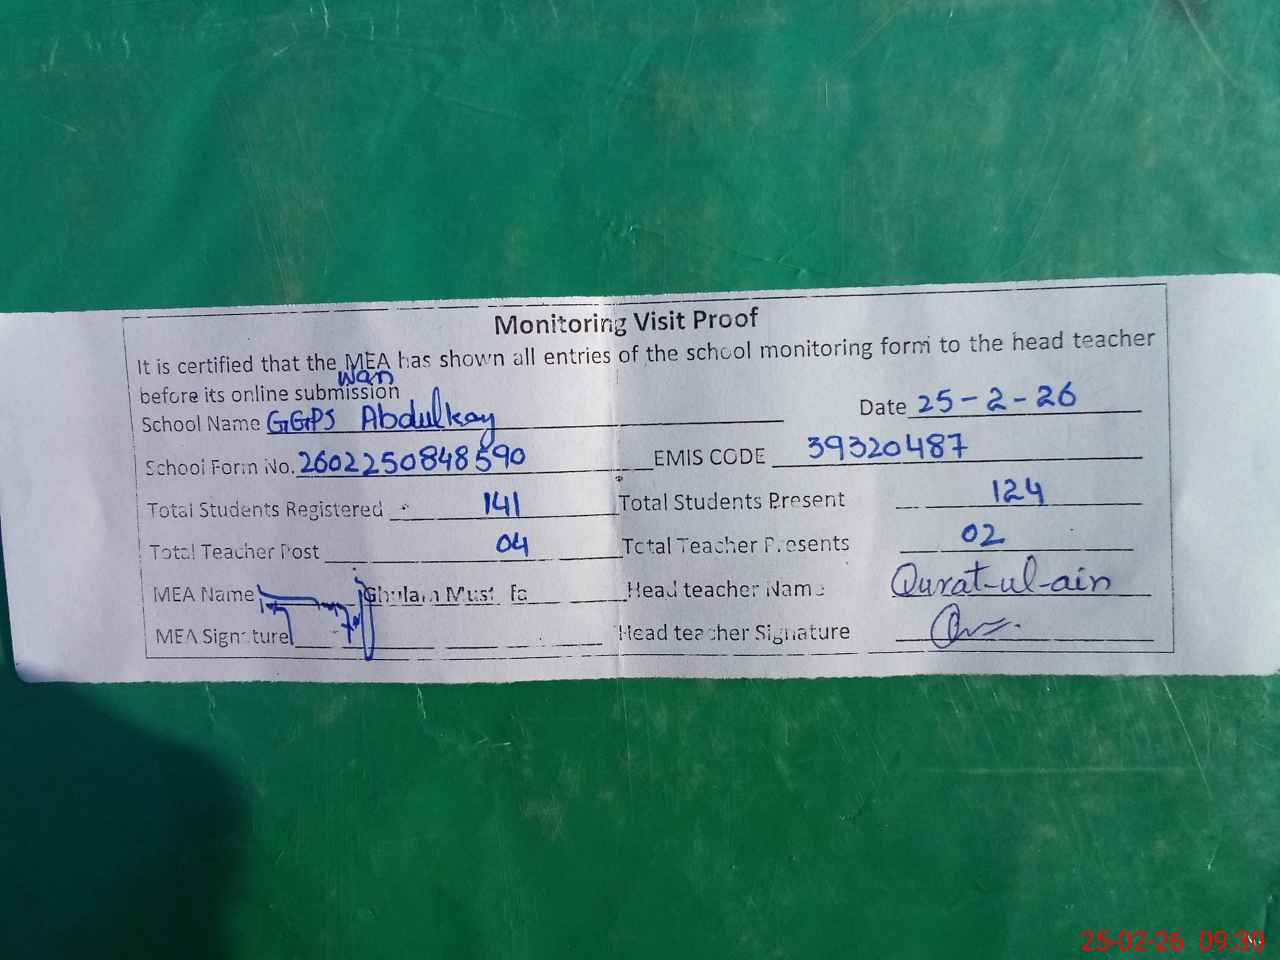 Monitoring Visit Proof
It is certified that the MEA has shown all entries of the school monitoring form to the head teacher
before its online submission
wan
School Name GGPS Abdulkay Date 25-2-26
School Form No. 2602250848590 EMIS CODE 39320487
Total Students Registered 141 Total Students Present 124
Total Teacher Post 04 Total Teacher Presents 02
MEA Name Ghulam Mustafa Head teacher Name Qurat-ul-ain
MEA Signature Head teacher Signature
25-02-26 09:30